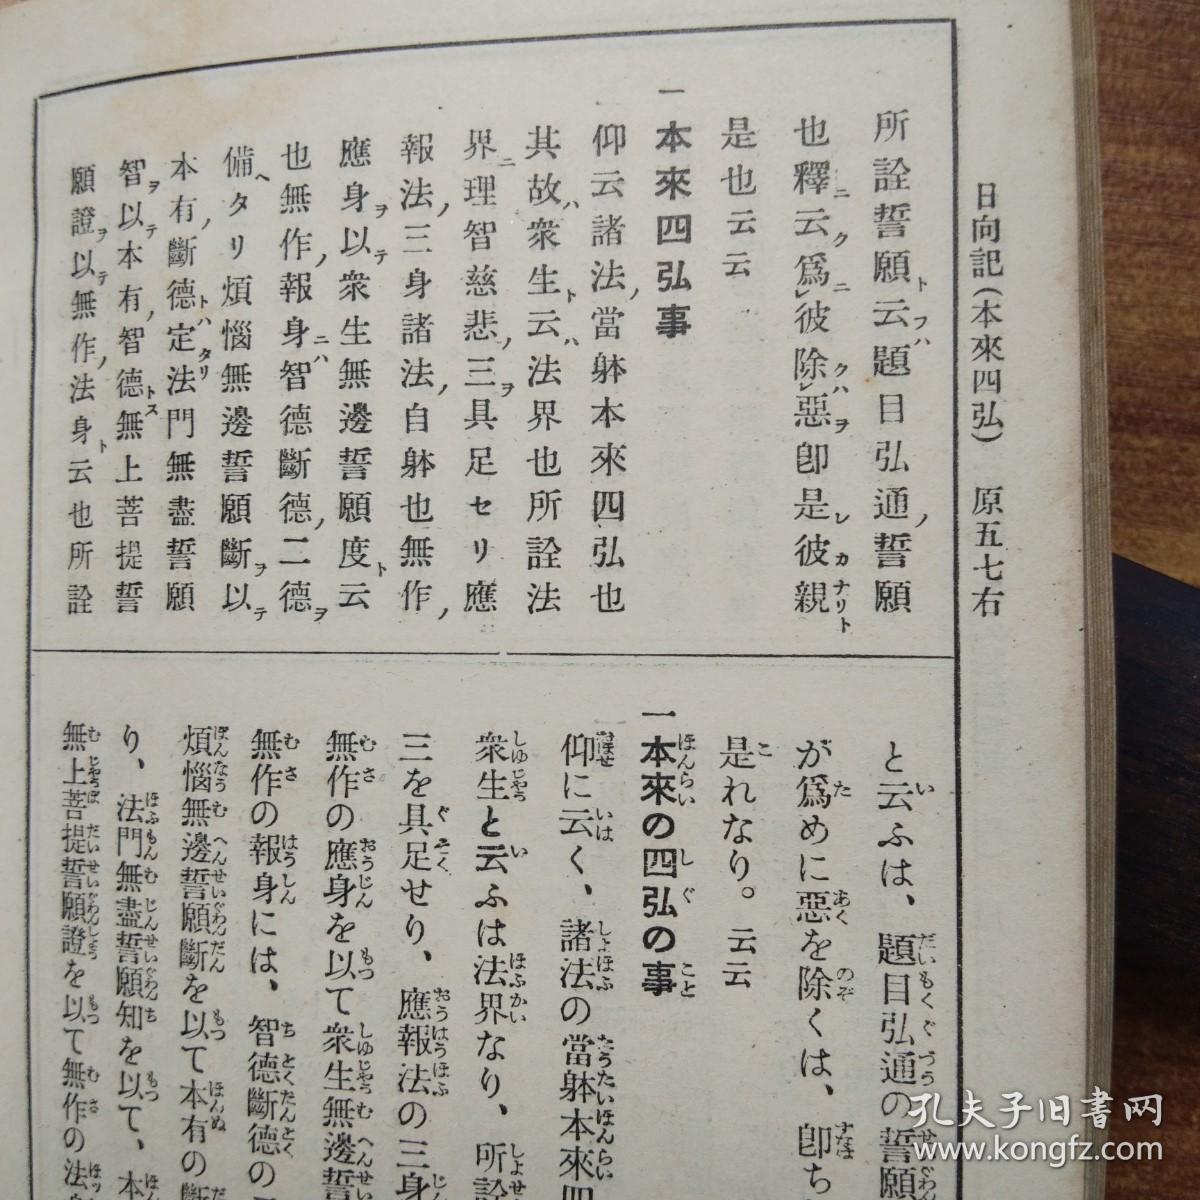 日向記(本來四弘)　原五七右
所詮誓願ト云フハ題目弘通ノ誓願
也釋ニ云ク爲ニ彼除クハ惡ヲ卽是レ彼カ親ナリト
是也云云
一 本來四弘事
仰云諸法ノ當躰本來四弘也
其故ハ衆生ト云ハ法界也所詮法
界ニ理智慈悲ノ三ヲ具足セリ應
報法ノ三身諸法ノ自躰也無作ノ
應身ヲ以テ衆生無邊誓願度ト云
也無作ノ報身ニハ智德斷德ノ二德ヲ
備ヘタリ煩惱無邊誓願斷ヲ以テ
本有ノ斷德トハ定タリ法門無盡誓願
智ヲ以テ本有ノ智德トス無上菩提誓
願證ヲ以テ無作ノ法身ト云也所詮
と云ふは、題目弘通の誓願
が爲めに惡を除くは、卽ち
是れなり。云云
一 本來の四弘の事
仰に云く、諸法の當躰本來四
衆生と云ふは法界なり、所詮
三を具足せり、應報法の三身
無作の應身を以て衆生無邊誓
無作の報身には、智德斷德の
煩惱無邊誓願斷を以て本有の斷
り、法門無盡誓願知を以て、本
無上菩提誓願證を以て無作の法身
孔夫子旧書网
www.kongfz.com